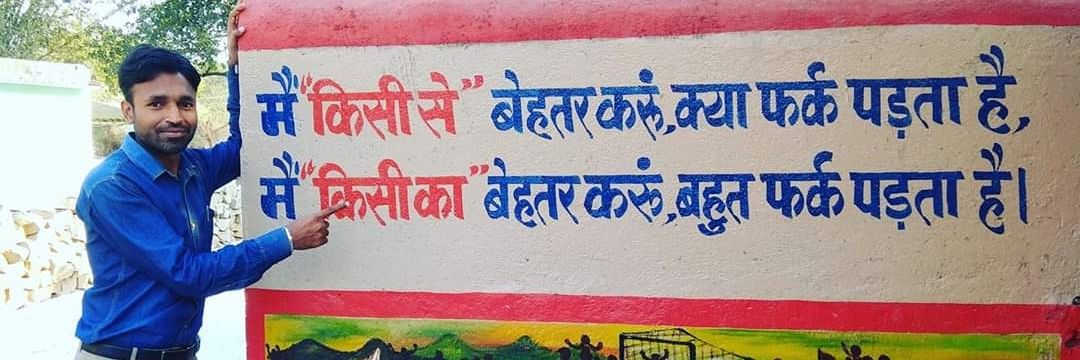 मैं "किसी से" बेहतर करूं, क्या फर्क पड़ता है,
मैं "किसी का" बेहतर करूं, बहुत फर्क पड़ता है।